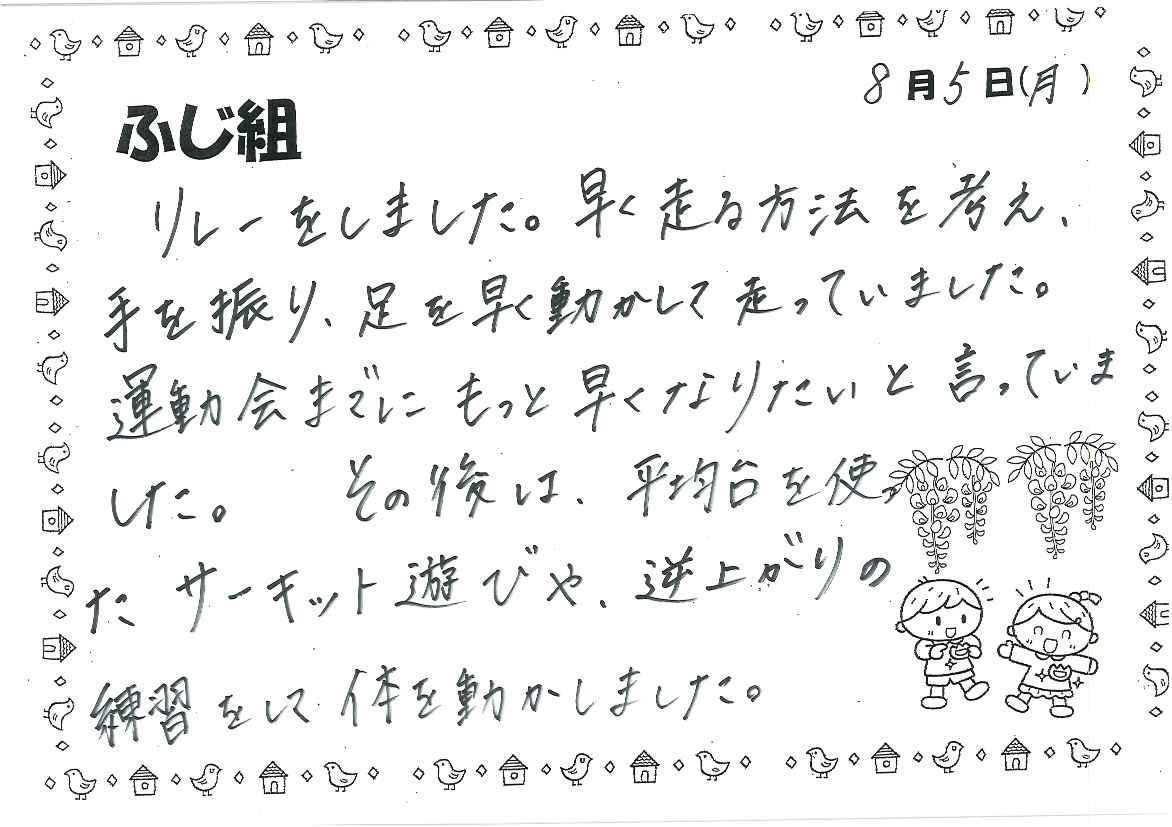 8月5日(月)
ふじ組
リレーをしました。早く走る方法を考え、
手を振り、足を早く動かして走っていました。
運動会までにもっと早くなりたいと言っていま
した。　その後は、平均台を使っ
たサーキット遊びや、逆上がりの
練習をして体を動かしました。